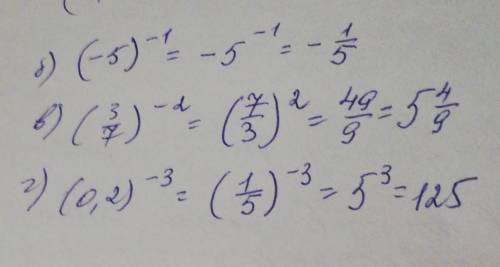 б) (-5)⁻¹ = -5⁻¹ = -1/5
в) (3/7)⁻² = (7/3)² = 49/9 = 5 4/9
г) (0,2)⁻³ = (1/5)⁻³ = 5³ = 125